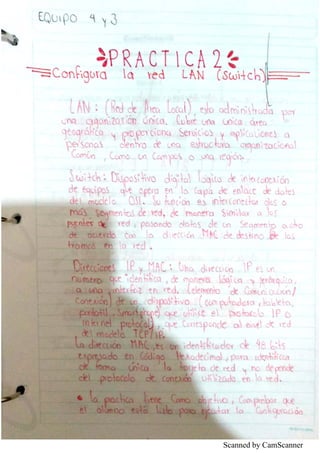 EQUIPO 4 y 3
PRACTICA 2
Configura la red LAN (Switch)
LAN: (Red de Area Local) esta administrada por
una organización única. Cubre una única área
geográfica y proporciona servicios y aplicaciones a
personas dentro de una estructura organizacional
Común, Como un Campos o una región.
Switch: Dispositivo digital lógico de interconexión
de equipos que opera en la capa de enlace de datos
del modelo OSI. Su función es interconectar dos o
más segmentos de red, de manera similar a los
puentes de red, pasando datos de un segmento a otro
de acuerdo con la dirección MAC de destino de las
tramas en la red.
Direcciones IP y MAC: Una dirección IP es un
número que identifica, de manera lógica y jerárquica,
a una interfaz en red (elemento de Comunicación/
Conexión) de un dispositivo (computadora, tableta,
portátil, Smartphone) que utilice el protocolo IP o
Internet protocol), que corresponde al nivel de red
del modelo TCP/IP.
La dirección MAC es un identificador de 48 bits
expresado en Código hexadecimal, para identificar
de forma única la tarjeta de red y no depende
del protocolo de conexión utilizado en la red.
• la practica tiene Como objetivo, Comprobar que
el alumno esta listo para ejecutar la Configuración
Scanned by CamScanner